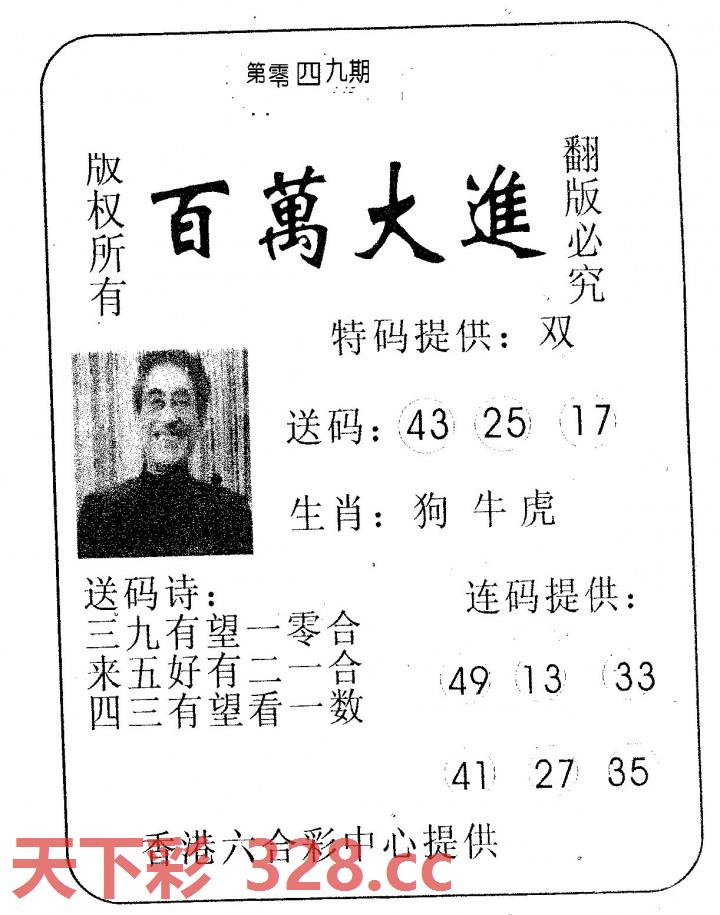 第零四九期
版权所有
百萬大進
翻版必究
特码提供：双
送码：43 25 17
生肖：狗 牛 虎
送码诗：
三九有望一零合
来五好有二一合
四三有望看一数
连码提供：
49 13 33
41 27 35
香港六合彩中心提供
天下彩 328.cc